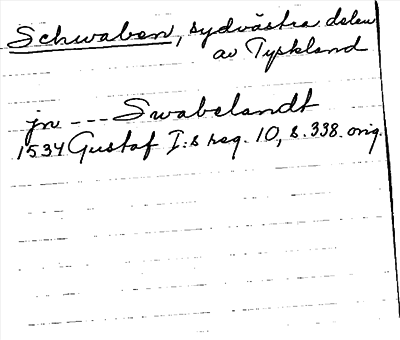 Schwaben, sydvästra delen
av Tyskland
jn --- Swabelandt
1534 Gustaf I:s reg. 10, s. 338. orig.